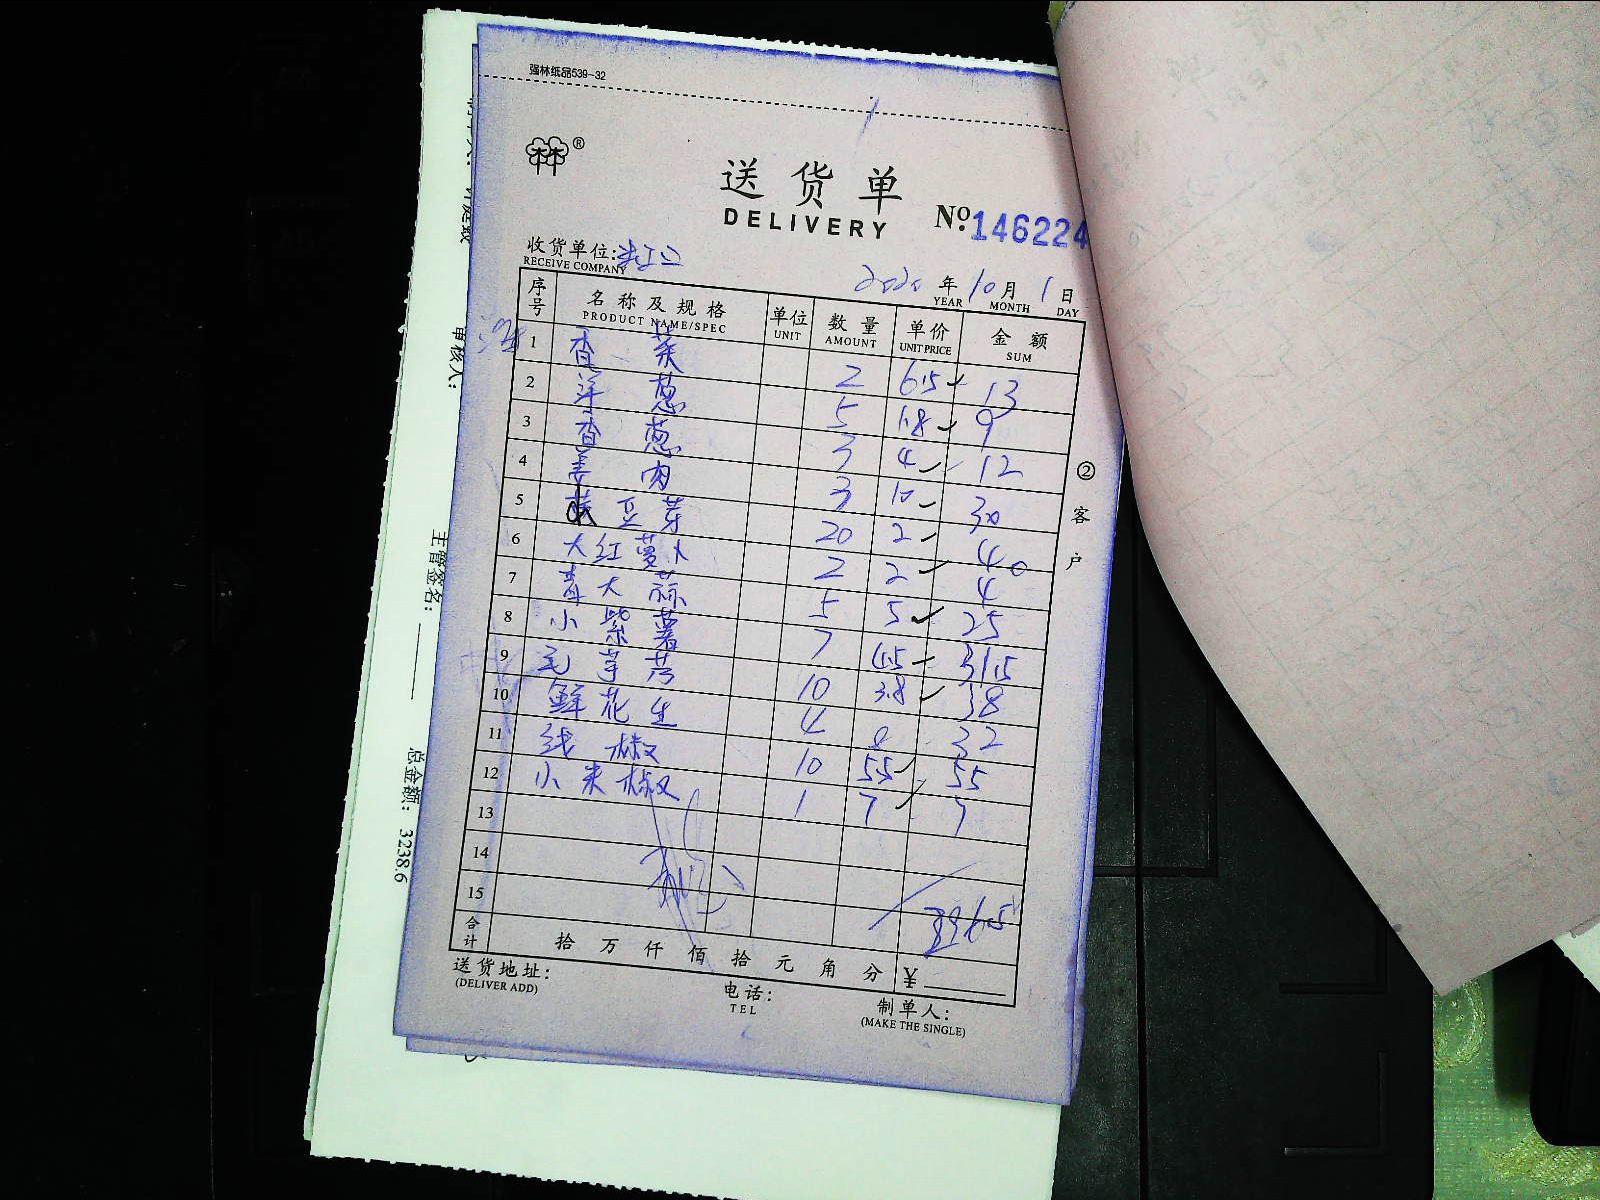 强林纸品539-32
林®
送货单
DELIVERY
№:146224
收货单位:
RECEIVE COMPANY
2020 年 10 月 1 日
YEAR MONTH DAY
序号 名称及规格 单位 数量 单价 金额
PRODUCT NAME/SPEC UNIT AMOUNT UNIT PRICE SUM
1 香菜 2 6.5 13
2 洋葱 5 1.8 9
3 香葱 3 4 12
4 姜肉 3 10 30
5 豆芽 20 2 40
6 大红萝卜 2 2 4
7 青大蒜 5 5 25
8 小紫薯 7 4.5 31.5
9 毛芋艿 10 3.8 38
10 鲜花生 4 8 32
11 线椒 10 5.5 55
12 小米椒 1 7 7
13
14
15
合计 拾 万 仟 佰 拾 元 角 分 ¥
送货地址:
(DELIVER ADD)
电话:
TEL
制单人:
(MAKE THE SINGLE)
②客户
审核人:
主管签名:
总金额: 3238.6